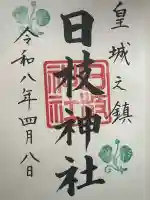 皇城之鎮
日枝神社
令和八年四月八日